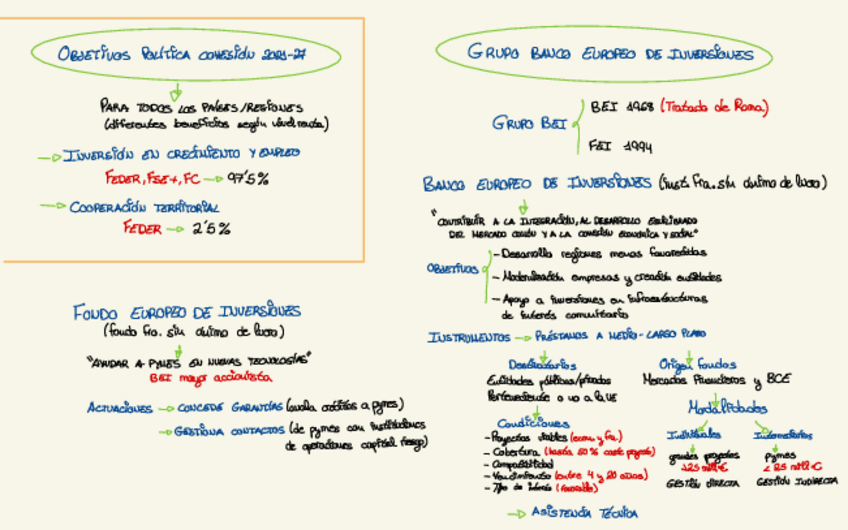 OBJETIVOS POLÍTICA COHESIÓN 2021-27
PARA TODOS LOS PAÍSES/REGIONES
(diferentes beneficios según nivel renta)
INVERSIÓN EN CRECIMIENTO Y EMPLEO
FEDER, FSE+, FC → 97'5%
COOPERACIÓN TERRITORIAL
FEDER → 2'5%
FONDO EUROPEO DE INVERSIONES
(fondo fra. sin ánimo de lucro)
"AYUDAR A PYMES EN NUEVAS TECNOLOGÍAS"
BEI mayor accionista
ACTUACIONES → CONCEDE GARANTÍAS (avala créditos a pymes)
→ GESTIONA CONTACTOS (de pymes con instituciones
de operaciones capital riesgo)
GRUPO BANCO EUROPEO DE INVERSIONES
GRUPO BEI
BEI 1968 (Tratado de Roma)
FEI 1994
BANCO EUROPEO DE INVERSIONES (inst. fra. sin ánimo de lucro)
"CONTRIBUIR A LA INTEGRACIÓN, AL DESARROLLO EQUILIBRADO
DEL MERCADO COMÚN Y A LA COHESIÓN ECONÓMICA Y SOCIAL"
OBJETIVOS
- Desarrollo regiones menos favorecidas
- Modernización empresas y creación entidades
- Apoyo a inversiones en infraestructuras
de interés comunitario
INSTRUMENTOS → PRÉSTAMOS A MEDIO-LARGO PLAZO
Destinatarios
Entidades públicas/privadas
Perteneciente o no a la UE
Condiciones
- Proyectos viables (econ. y fra.)
- Cobertura (hasta 50% coste proyecto)
- Compatibilidad
- Vencimiento (entre 4 y 20 años)
- Tipo de interés (favorable)
→ ASISTENCIA TÉCNICA
Origen fondos
Mercados financieros y BCE
Modalidades
Individuales
grandes proyectos
>25 mill €
GESTIÓN DIRECTA
Intermediarios
pymes
< 25 mill €
GESTIÓN INDIRECTA